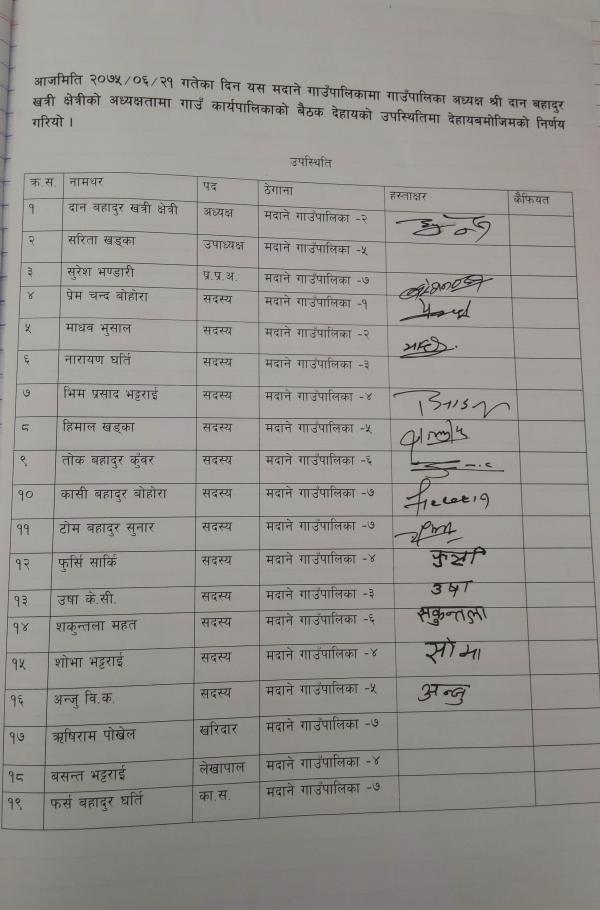 आजमिति २०७५/०६/२१ गतेका दिन यस मदाने गाउँपालिकामा गाउँपालिका अध्यक्ष श्री दान बहादुर
खत्री क्षेत्रीको अध्यक्षतामा गाउँ कार्यपालिकाको बैठक देहायको उपस्थितिमा देहायबमोजिमको निर्णय
गरियो ।
उपस्थिति
क्र.स. नामथर पद ठेगाना हस्ताक्षर कैफियत
१ दान बहादुर खत्री क्षेत्री अध्यक्ष मदाने गाउँपालिका -२
२ सरिता खड्का उपाध्यक्ष मदाने गाउँपालिका -५
३ सुरेश भण्डारी प्र.प्र.अ. मदाने गाउँपालिका -७
४ प्रेम चन्द बोहोरा सदस्य मदाने गाउँपालिका -१
५ माधव भुसाल सदस्य मदाने गाउँपालिका -२
६ नारायण घर्ति सदस्य मदाने गाउँपालिका -३
७ भिम प्रसाद भट्टराई सदस्य मदाने गाउँपालिका -४
८ हिमाल खड्का सदस्य मदाने गाउँपालिका -५
९ तोक बहादुर कुँवर सदस्य मदाने गाउँपालिका -६
१० कासी बहादुर बोहोरा सदस्य मदाने गाउँपालिका -७
११ टोम बहादुर सुनार सदस्य मदाने गाउँपालिका -७
१२ फुर्सि सार्कि सदस्य मदाने गाउँपालिका -४ फुर्सी
१३ उषा के.सी. सदस्य मदाने गाउँपालिका -३ उषा
१४ शकुन्तला महत सदस्य मदाने गाउँपालिका -६ सकुन्तला
१५ शोभा भट्टराई सदस्य मदाने गाउँपालिका -४ सोभा
१६ अन्जु वि.क. सदस्य मदाने गाउँपालिका -५ अन्जु
१७ ऋषिराम पोखेल खरिदार मदाने गाउँपालिका -७
१८ बसन्त भट्टराई लेखापाल मदाने गाउँपालिका -४
१९ फर्स बहादुर घर्ति का.स. मदाने गाउँपालिका -७